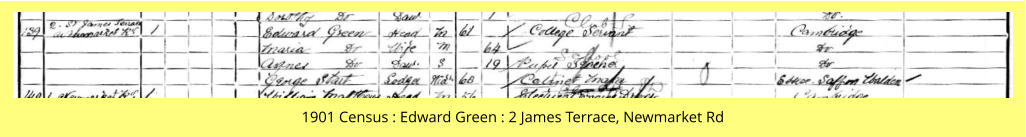 Dorothy Do Daur 1 Do
139 2. St James Terrace 1 Edward Green Head M 61 College Servant Cambridge
Newmarket Rd Maria Do Wife M 64 Do
Agnes Do Daur S 19 Pupil Teacher Do
George Start Lodger Widr 60 Cabinet Maker Essex Saffron Walden
140 1 Newmarket Rd 1 William Matthews Head M
1901 Census : Edward Green : 2 James Terrace, Newmarket Rd